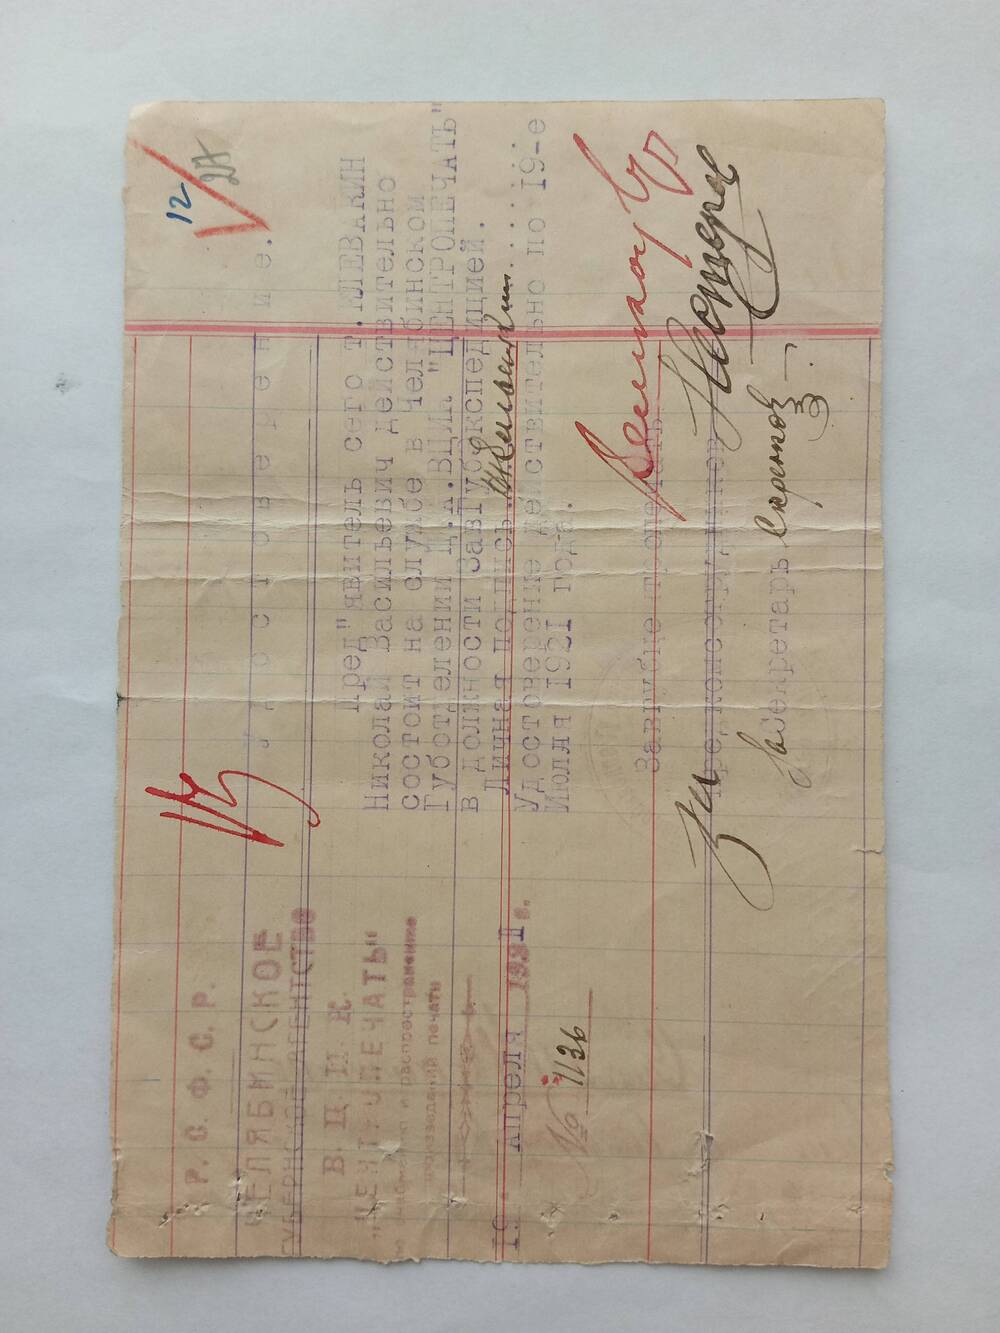 12
Р. С. Ф. С. Р.
ЧЕЛЯБИНСКОЕ
ГУБЕРНСКОЕ АГЕНТСТВО
В. Ц. И. К.
"ЦЕНТРОПЕЧАТЬ"
и распространение
произведений печати
19 Апреля 1921 г.
№ 1136
Удостоверение.
Пред"явитель сего т. КЛЕВАКИН
Николай Васильевич действительно
состоит на службе в Челябинском
Губотделении Ц.А.ВЦИК "ЦЕНТРОПЕЧАТЬ"
в должности ЗавГубэкспедицией.
Личная подпись
Удостоверение действительно по 19-е
Июля 1921 года.
Завгубцентропечать
За Предкомсотрудников
Секретарь